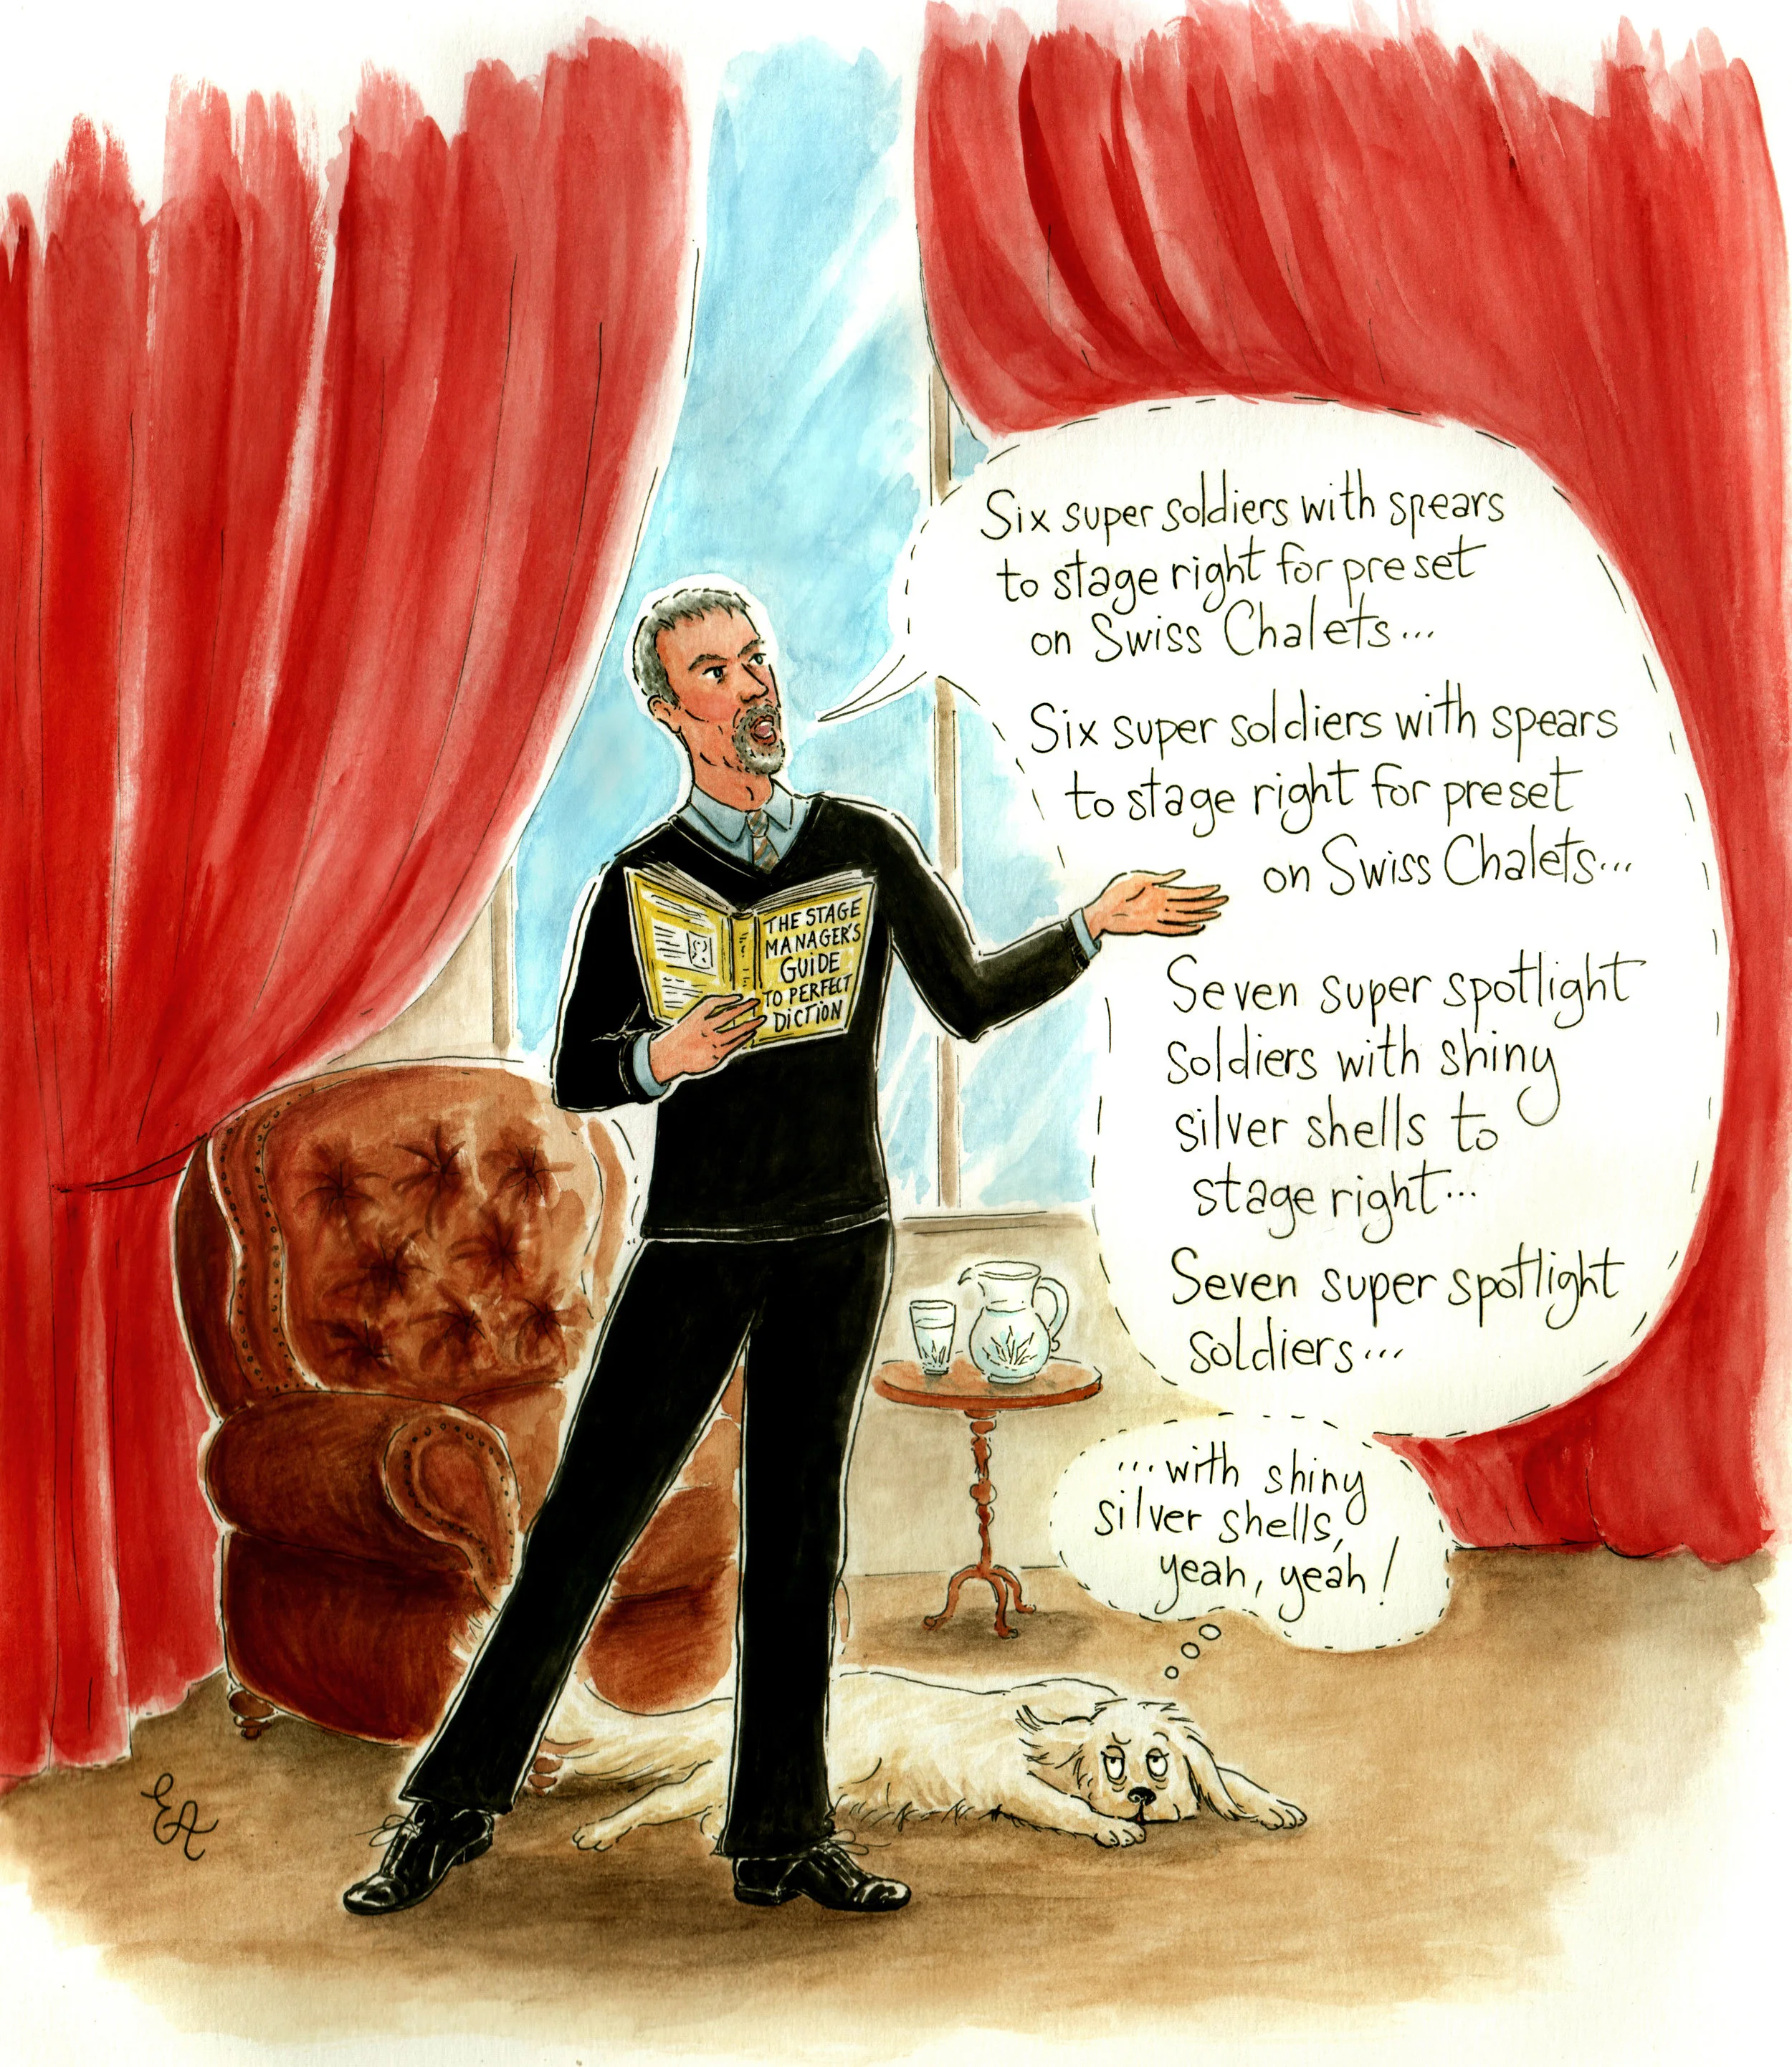 Six super soldiers with spears
to stage right for preset
on Swiss Chalets...
Six super soldiers with spears
to stage right for preset
on Swiss Chalets...
THE STAGE
MANAGER'S
GUIDE
TO PERFECT
DICTION
Seven super spotlight
soldiers with shiny
silver shells to
stage right...
Seven super spotlight
soldiers...
...with shiny
silver shells,
yeah, yeah!
EA